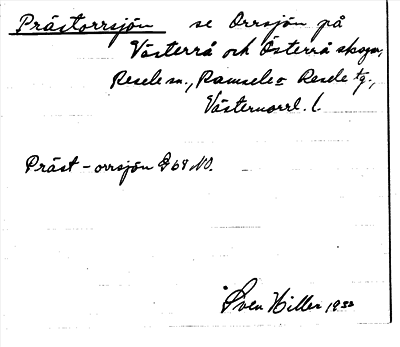 Prästorrsjön se Orrsjön på
Västerrå och Österrå skogar,
Resele sn., Ramsele o Resele tg.,
Västernorrl. l.
Präst-orrsjön G 68 NO.
Sven Hiller 1952